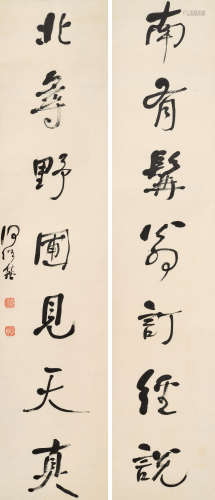 南有髯翁訂經說
北尋野圃見天真
何紹基